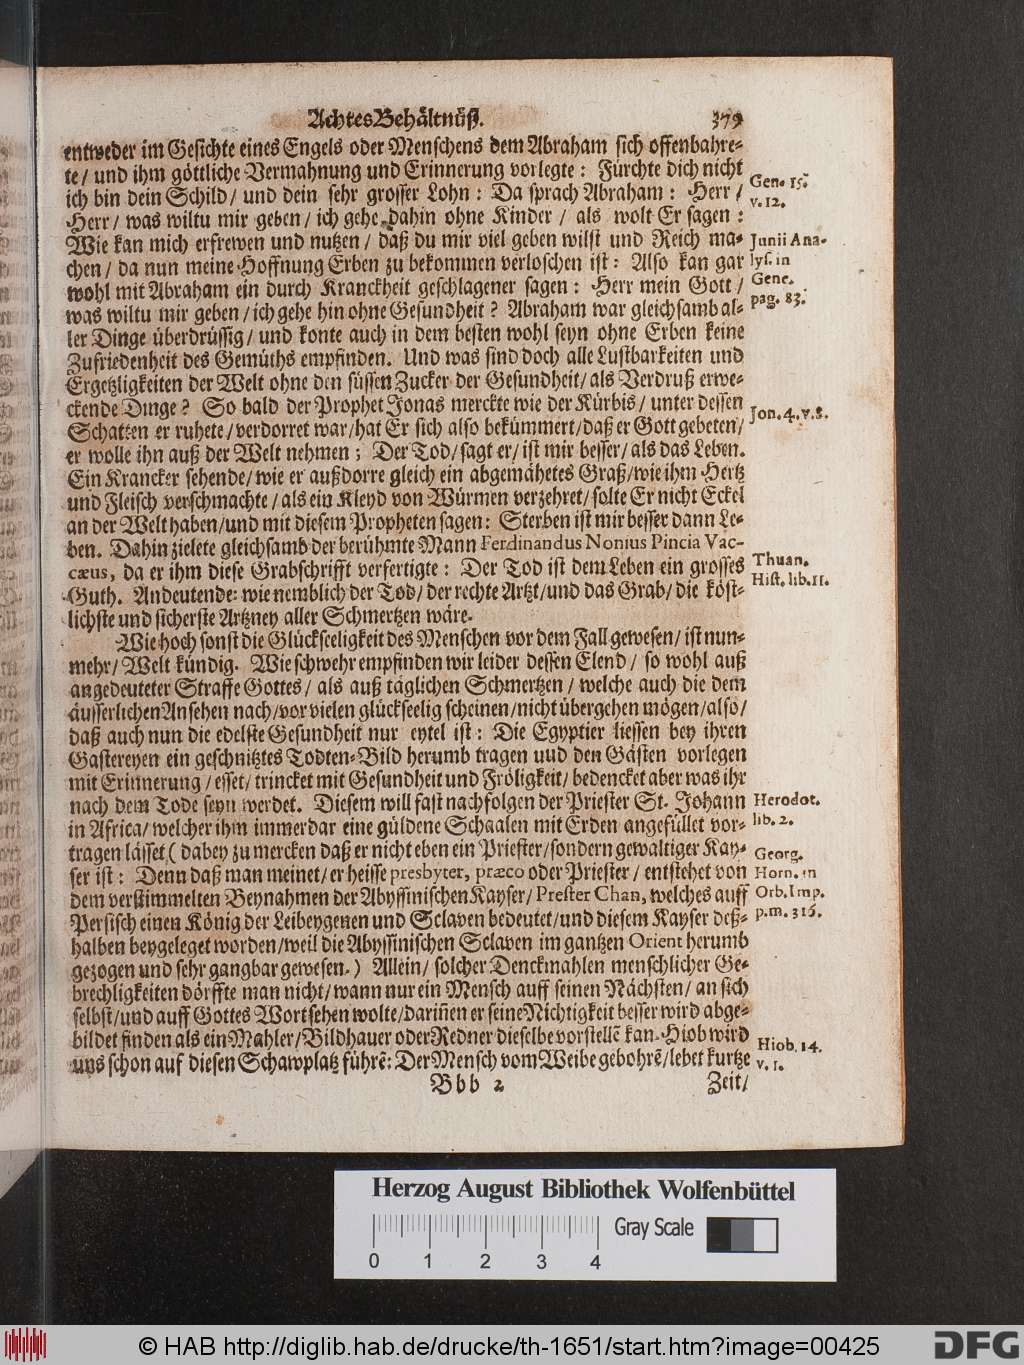 Achtes Behältnüß. 379
entweder im Gesichte eines Engels oder Menschens dem Abraham sich offenbahre-
te / und ihm göttliche Vermahnung und Erinnerung vorlegte : Fürchte dich nicht
ich bin dein Schild / und dein sehr grosser Lohn : Da sprach Abraham : Herr /
Gen. 15.
v. 12.
Herr / was wiltu mir geben / ich gehe dahin ohne Kinder / als wolt Er sagen :
Wie kan mich erfrewen und nutzen / daß du mir viel geben wilst und Reich ma-
Junii Ana-
chen / da nun meine Hoffnung Erben zu bekommen verloschen ist : Also kan gar
lys. in
wohl mit Abraham ein durch Kranckheit geschlagener sagen : Herr mein Gott /
Gene.
was wiltu mir geben / ich gehe hin ohne Gesundheit ? Abraham war gleichsamb al-
pag. 83.
ler Dinge überdrüssig / und konte auch in dem besten wohl seyn ohne Erben keine
Zufriedenheit des Gemüths empfinden. Und was sind doch alle Lustbarkeiten und
Ergetzligkeiten der Welt ohne den süssen Zucker der Gesundheit / als Verdruß erwe-
ckende Dinge ? So bald der Prophet Jonas merckte wie der Kürbis / unter dessen
Jon. 4. v. 8.
Schatten er ruhete / verdorret war / hat Er sich also bekümmert / daß er Gott gebeten /
er wolle ihn auß der Welt nehmen ; Der Tod / sagt er / ist mir besser / als das Leben.
Ein Krancker sehende / wie er außdorre gleich ein abgemähetes Graß / wie ihm Hertz
und Fleisch verschmachte / als ein Kleyd von Würmen verzehret / solte Er nicht Eckel
an der Welt haben / und mit diesem Propheten sagen : Sterben ist mir besser dann Le-
ben. Dahin zielete gleichsamb der berühmte Mann Ferdinandus Nonius Pincia Vac-
cæus, da er ihm diese Grabschrifft verfertigte : Der Tod ist dem Leben ein grosses
Thuan.
Hist. lib. 11.
Guth. Andeutende: wie nemblich der Tod / der rechte Artzt / und das Grab / die köst-
lichste und sicherste Artzney aller Schmertzen wäre.
Wie hoch sonst die Glückseeligkeit des Menschen vor dem Fall gewesen / ist nun-
mehr / Welt kündig. Wie schwehr empfinden wir leider dessen Elend / so wohl auß
angedeuteter Straffe Gottes / als auß täglichen Schmertzen / welche auch die dem
äusserlichen Ansehen nach / vor vielen glückseelig scheinen / nicht übergehen mögen / also /
daß auch nun die edelste Gesundheit nur eytel ist : Die Egyptier liessen bey ihren
Gastereyen ein geschnitztes Todten-Bild herumb tragen uud den Gästen vorlegen
mit Erinnerung / esset / trincket mit Gesundheit und Fröligkeit / bedencket aber was ihr
nach dem Tode seyn werdet. Diesem will fast nachfolgen der Priester St. Johann
Herodot.
lib. 2.
in Africa / welcher ihm immerdar eine güldene Schaalen mit Erden angefüllet vor-
tragen lässet ( dabey zu mercken daß er nicht eben ein Priester / sondern gewaltiger Kay-
Georg.
ser ist : Denn daß man meinet / er heisse presbyter, præco oder Priester / entstehet von
Horn. in
dem verstimmelten Beynahmen der Abyssinischen Kayser / Prester Chan, welches auff
Orb. Imp.
Persisch einen König der Leibeygenen und Sclaven bedeutet / und diesem Kayser deß-
p. m. 316.
halben beygeleget worden / weil die Abyssinischen Sclaven im gantzen Orient herumb
gezogen und sehr gangbar gewesen. ) Allein / solcher Denckmahlen menschlicher Ge-
brechligkeiten dörffte man nicht / wann nur ein Mensch auff seinen Nächsten / an sich
selbst / und auff Gottes Wort sehen wolte / dariñen er seine Nichtigkeit besser wird abge-
bildet finden als ein Mahler / Bildhauer oder Redner dieselbe vorstellẽ kan. Hiob wird
uns schon auf diesen Schawplatz führẽ : Der Mensch vom Weibe gebohrẽ / lebet kurtze
Hiob. 14.
v. 1.
Bbb 2 Zeit /
Herzog August Bibliothek Wolfenbüttel
Gray Scale
0 1 2 3 4
© HAB http://diglib.hab.de/drucke/th-1651/start.htm?image=00425
DFG